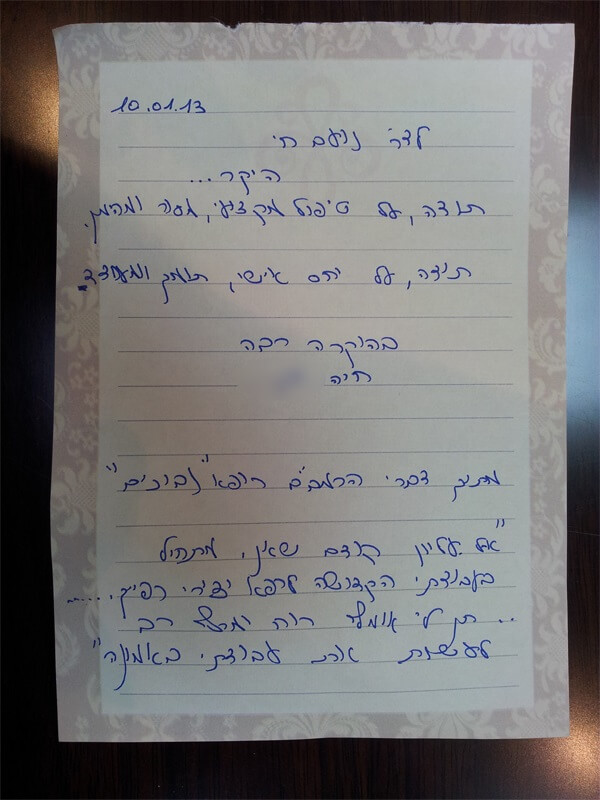 10.01.13
לדר' נועם חי
היקר...
תודה, על טיפול מקצועי, מסור ומהימן.
תודה, על יחס אישי, תומך ומעודד.
בהוקרה רבה
חיה
מתוך דברי הרמב"ם רופא "נבוכים"
"אל עליון קודם שאני מתחיל
בעבודתי הקדושה לרפא יצירי כפיך.....
.. תן לי אומץ רוח ומרץ רב
לעשות את עבודתי באמונה"